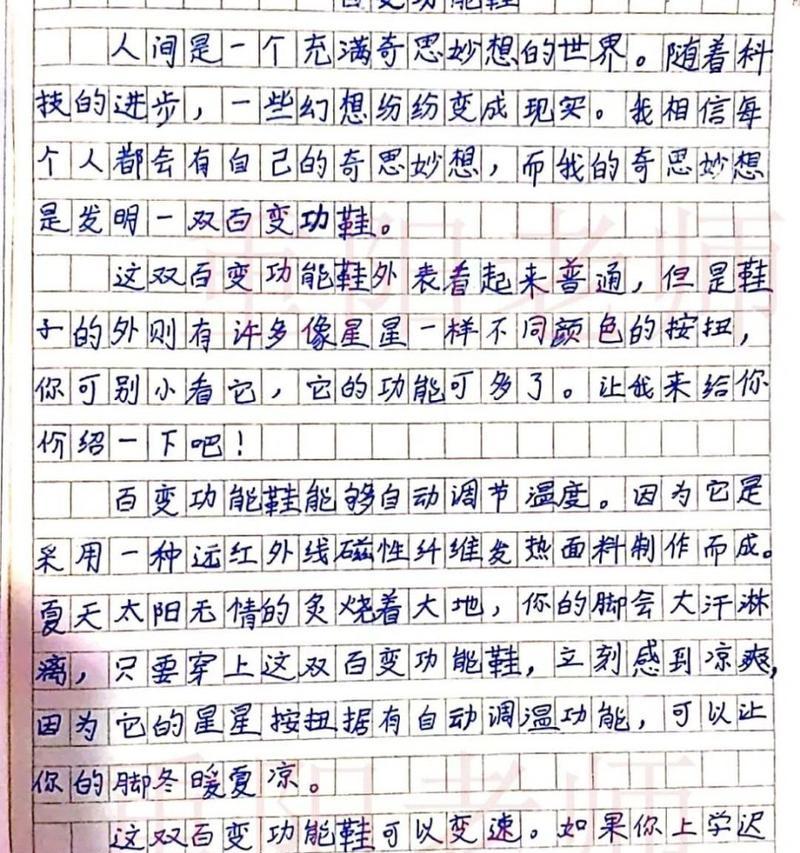 百变功能鞋
人间是一个充满奇思妙想的世界。随着科
技的进步，一些幻想纷纷变成现实。我相信每
个人都会有自己的奇思妙想，而我的奇思妙想
是发明一双百变功鞋。
这双百变功能鞋外表看起来普通，但是鞋
子的外则有许多像星星一样不同颜色的按扭，
你可别小看它，它的功能可多了。让我来给你
价绍一下吧！
百变功能鞋能够自动调节温度。因为它是
采用一种远红外线磁性纤维发热面料制作而成。
夏天太阳无情的炙烧着大地，你的脚会大汗淋
漓，只要穿上这双百变功能鞋，立刻感到凉爽，
因为它的星星按扭据有自动调温功能，可以让
你的脚冬暖夏凉。
这双百变功能鞋可以变速。如果你上学迟